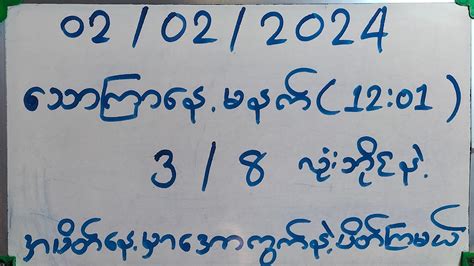 02/02/2024
သောကြာနေ့မနက်(12:01)
3/8 လုံးဘိုင်နဲ့
အပိတ်နေ့မှာအောကွက်နဲ့ပိတ်ကြမယ်